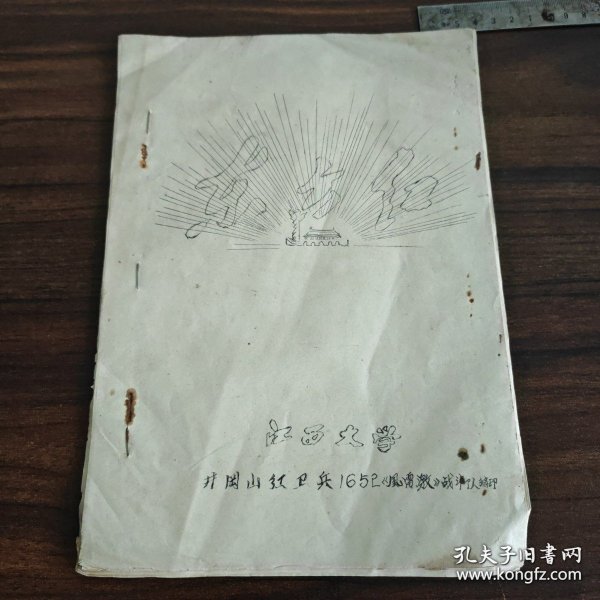 东方红
江西大学
井冈山红卫兵1652《风雷激》战斗队编印
孔夫子旧书网
www.kongfz.com